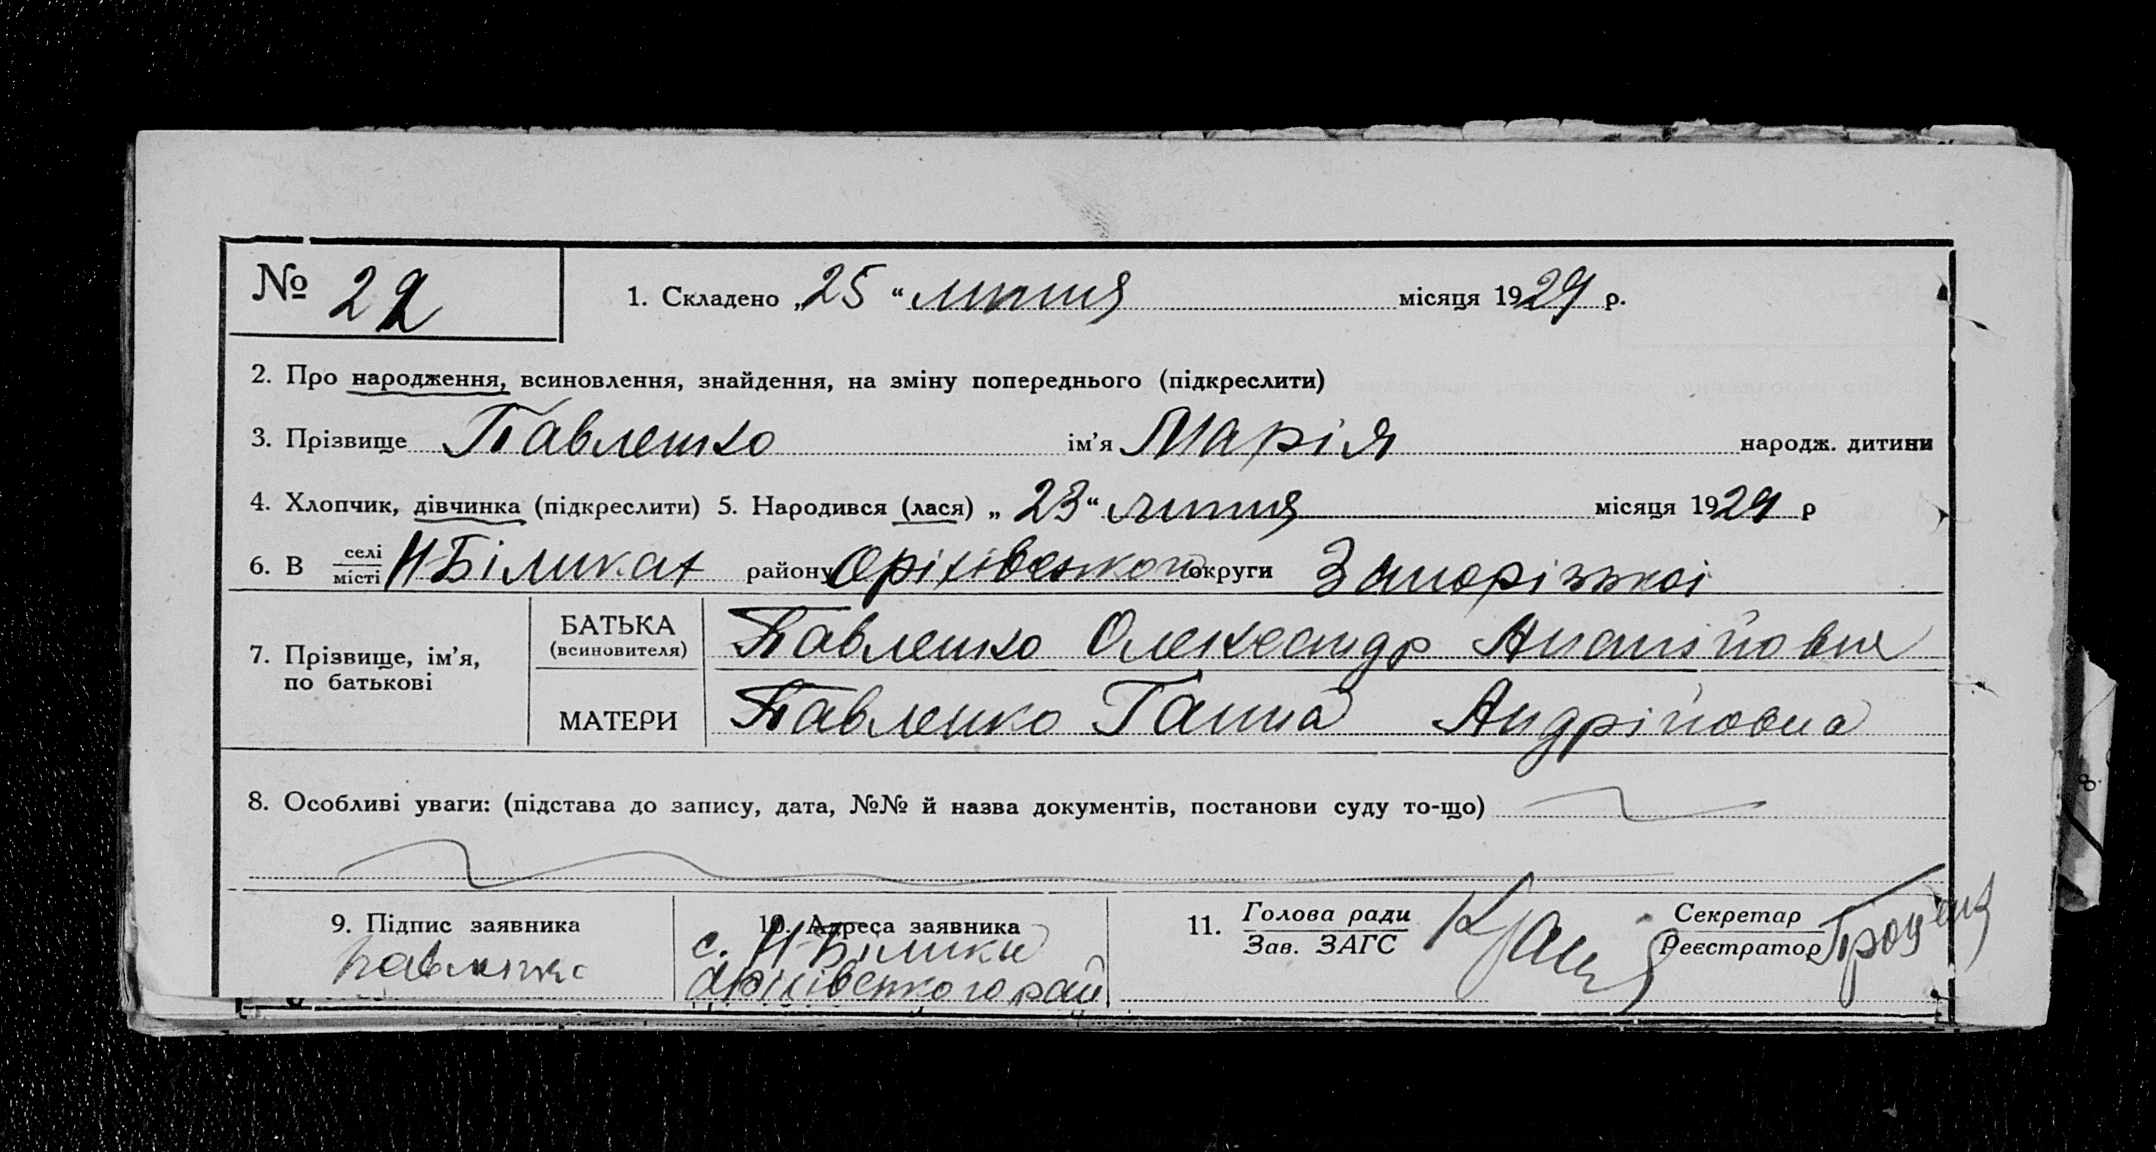 № 22
1. Складено „25“ липня місяця 1929 р.
2. Про народження, всиновлення, знайдення, на зміну попереднього (підкреслити)
3. Прізвище Павленко ім’я Марія народж. дитини
4. Хлопчик, дівчинка (підкреслити) 5. Народився (лася) „23“ липня місяця 1929 р
6. В селі місті району Оріхівського округи Запорізької
7. Прізвище, ім’я, по батькові
БАТЬКА (всиновителя) Павленко Олександр
МАТЕРИ Павленко Ганна Андрійовна
8. Особливі уваги: (підстава до запису, дата, №№ й назва документів, постанови суду то-що)
9. Підпис заявника
Павленко
10. Адреса заявника
с. Н Білики
Оріхівського рай
11. Голова ради
Зав. ЗАГС
Секретар
Реєстратор